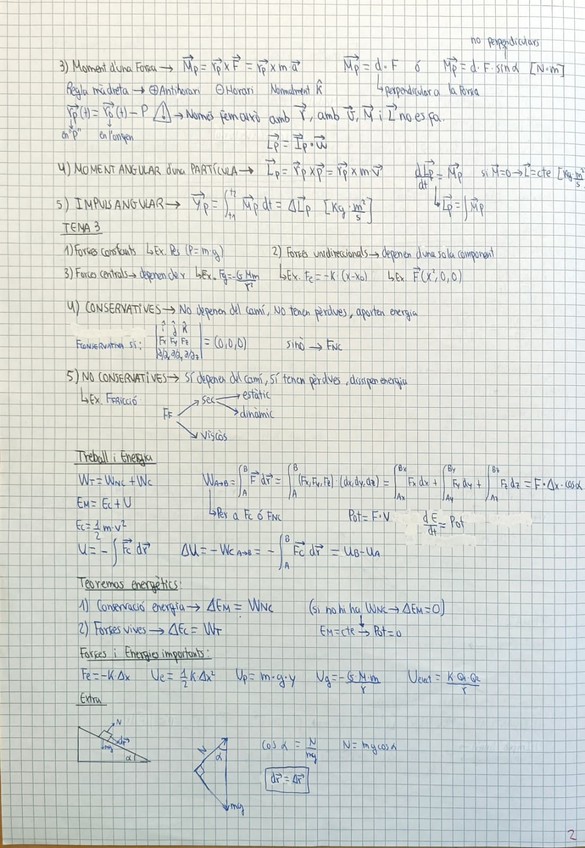 no perpendiculars
3) Moment d'una Força → M⃗p = r⃗p x F⃗ = r⃗p x m a⃗    M⃗p = d · F ó M⃗p = d · F · sin α [N·m]
Regla mà dreta → ⊕ Antihorari ⊖ Horari Normalment k̂    ↳ perpendicular a la Força
r⃗p(t) = r⃗o(t) - P ⚠ → Només fem això amb r⃗, amb v⃗, M⃗ i L⃗ no es fa.
en "P" en l'origen    L⃗p = I⃗p · w⃗
4) MOMENT ANGULAR d'una PARTÍCULA → L⃗p = r⃗p x p⃗ = r⃗p x m v⃗    dL⃗p/dt = M⃗p si M⃗=0 → L⃗ = cte [Kg·m²/s]
5) IMPULS ANGULAR → Y⃗p = ∫ₜ₁ᵗ² M⃗p dt = ΔL⃗p [Kg·m²/s]    ↳ L⃗p = ∫M⃗p
TEMA 3
1) Forces constants ↳ Ex. Pes (P=m·g)    2) Forces unidireccionals → depenen d'una sola component
3) Forces centrals → depenen de r ↳ Ex. Fg = -G Mm/r²    ↳ Ex. Fe = -K (x-x₀) ↳ Ex. F⃗(x², 0, 0)
4) CONSERVATIVES → No depenen del camí, No tenen pèrdues, aporten energia
Fconservativa si: | î ĵ k̂ | Fx Fy Fz | ∂/∂x ∂/∂y ∂/∂z | = (0,0,0)    sinó → FNC
5) NO CONSERVATIVES → Sí depenen del camí, Sí tenen pèrdues, dissipen energia
↳ Ex. FFRICCIÓ
FF → sec → estàtic
→ dinàmic
→ viscós
Treball i Energia
WT = WNC + WC    WA→B = ∫ₐᴮ F⃗ dr⃗ = ∫ₐᴮ (Fx, Fy, Fz) · (dx, dy, dz) = ∫Ax^Bx Fx dx + ∫Ay^By Fy dy + ∫Az^Bz Fz dz = F · Δx · cos α
EM = EC + U    ↳ Per a FC ó FNC    Pot = F · V    dE/dt = Pot
EC = 1/2 m·v²
U = -∫ F⃗c dr⃗    ΔU = -WC A→B = -∫ₐᴮ F⃗c dr⃗ = UB - UA
Teoremes energètics:
1) Conservació energia → ΔEM = WNC    (si no hi ha WNC → ΔEM = 0)
2) Forces vives → ΔEC = WT    EM = cte → Pot = 0
Forces i Energies importants:
Fe = -K·Δx    Ue = 1/2 K Δx²    Up = m·g·y    Ug = -G M·m/r    Uelect = K Q₁·Q₂/r
Extra
N dr⃗ mg α
N α mg
cos α = N/mg    N = mg cos α
dr⃗ = Δr⃗
2